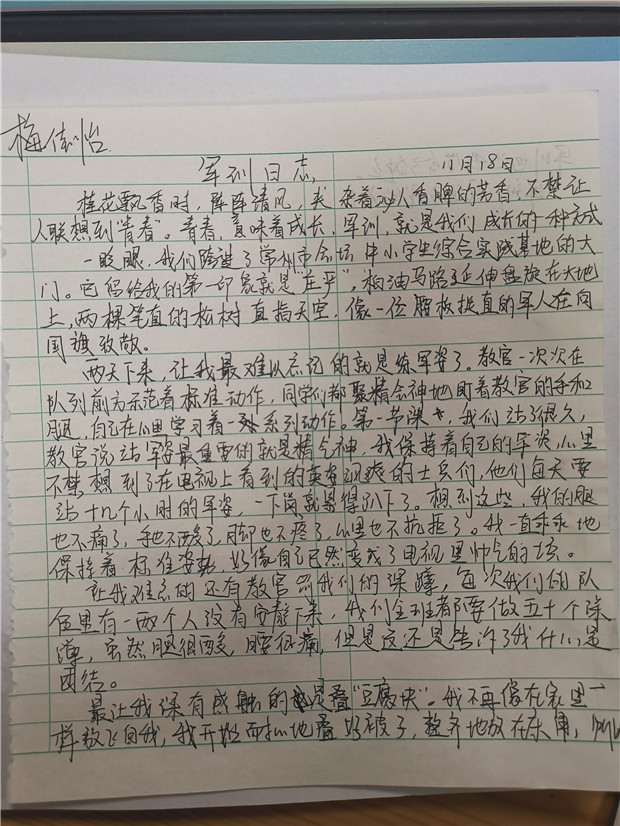 梅佳怡
军训日志 11月18日
桂花飘香时，阵阵清风，夹杂着沁人香脾的芳香，不禁让
人联想到“青春”。青春，意味着成长，军训，就是我们成长的一种方式
一眨眼，我们踏进了常州市金坛中小学生综合实践基地的大
门。它留给我的第一印象就是“庄平”，柏油马路延伸盘旋在大地
上，两棵笔直的松树直指天空，像一位腰板挺直的军人在向
国旗致敬。
两天下来，让我最难以忘记的就是练军姿了。教官一次次在
队列前方示范着标准动作，同学们都聚精会神地盯着教官的手和
腿，自己在心里学习着一系列动作。第一节课，我们站了很久，
教官说站军姿最重要的就是精气神，我保持着自己的军姿，心里
不禁想到了在电视上看到的英姿飒爽的士兵们，他们每天要
站十几个小时的军姿，一下岗就累得趴下了。想到这些，我的腿
也不痛了，手也不酸了，脚也不疼了，心里也不抗拒了。我一直乖乖地
保持着标准姿势，好像自己已然变成了电视里帅气的兵。
让我难忘的还有教官罚我们的深蹲，每次我们的队
伍里有一两个人没有安静下来，我们全班都要做五十个深
蹲，虽然腿很酸，腰很痛，但是这还是告诉了我什么是
团结。
最让我深有感触的是叠“豆腐块”。我不再像在家里一
样放飞自我，我开始耐心地叠好被子，整齐地放在床角，